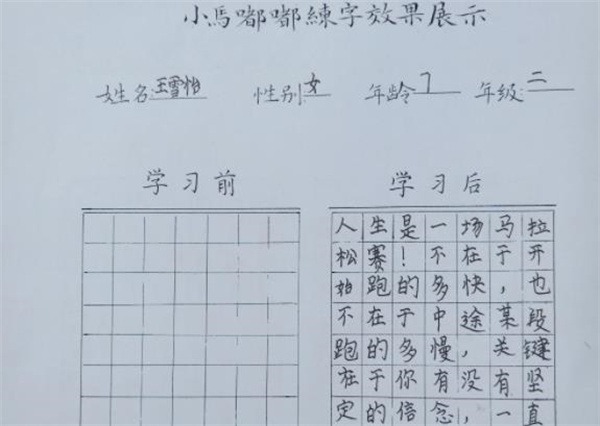 小馬嘟嘟練字效果展示
姓名:王雪怡 性别:女 年龄 7 年级:二
学习前 学习后
人生是一场马拉
松赛!不在于开
始跑的多快,也
不在于中途某段
跑的多慢,关键
在于你有没有坚
定的信念,一直